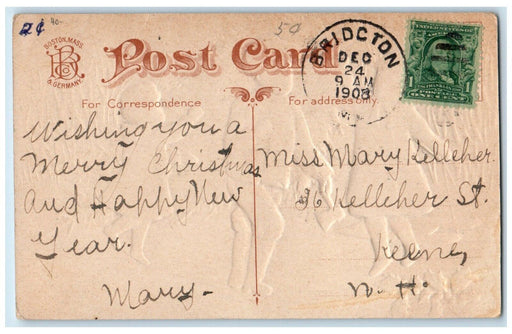 2¢ 40-
5¢
BOSTON, MASS.
& GERMANY.
Post Card
For Correspondence
For address only.
BRIDGTON
DEC
24
9 AM
1908
Wishing you a
Merry Christmas
and Happy New
Year.
Mary-
Miss Mary Kelleher.
36 Kelleher St.
Keene,
N. H.